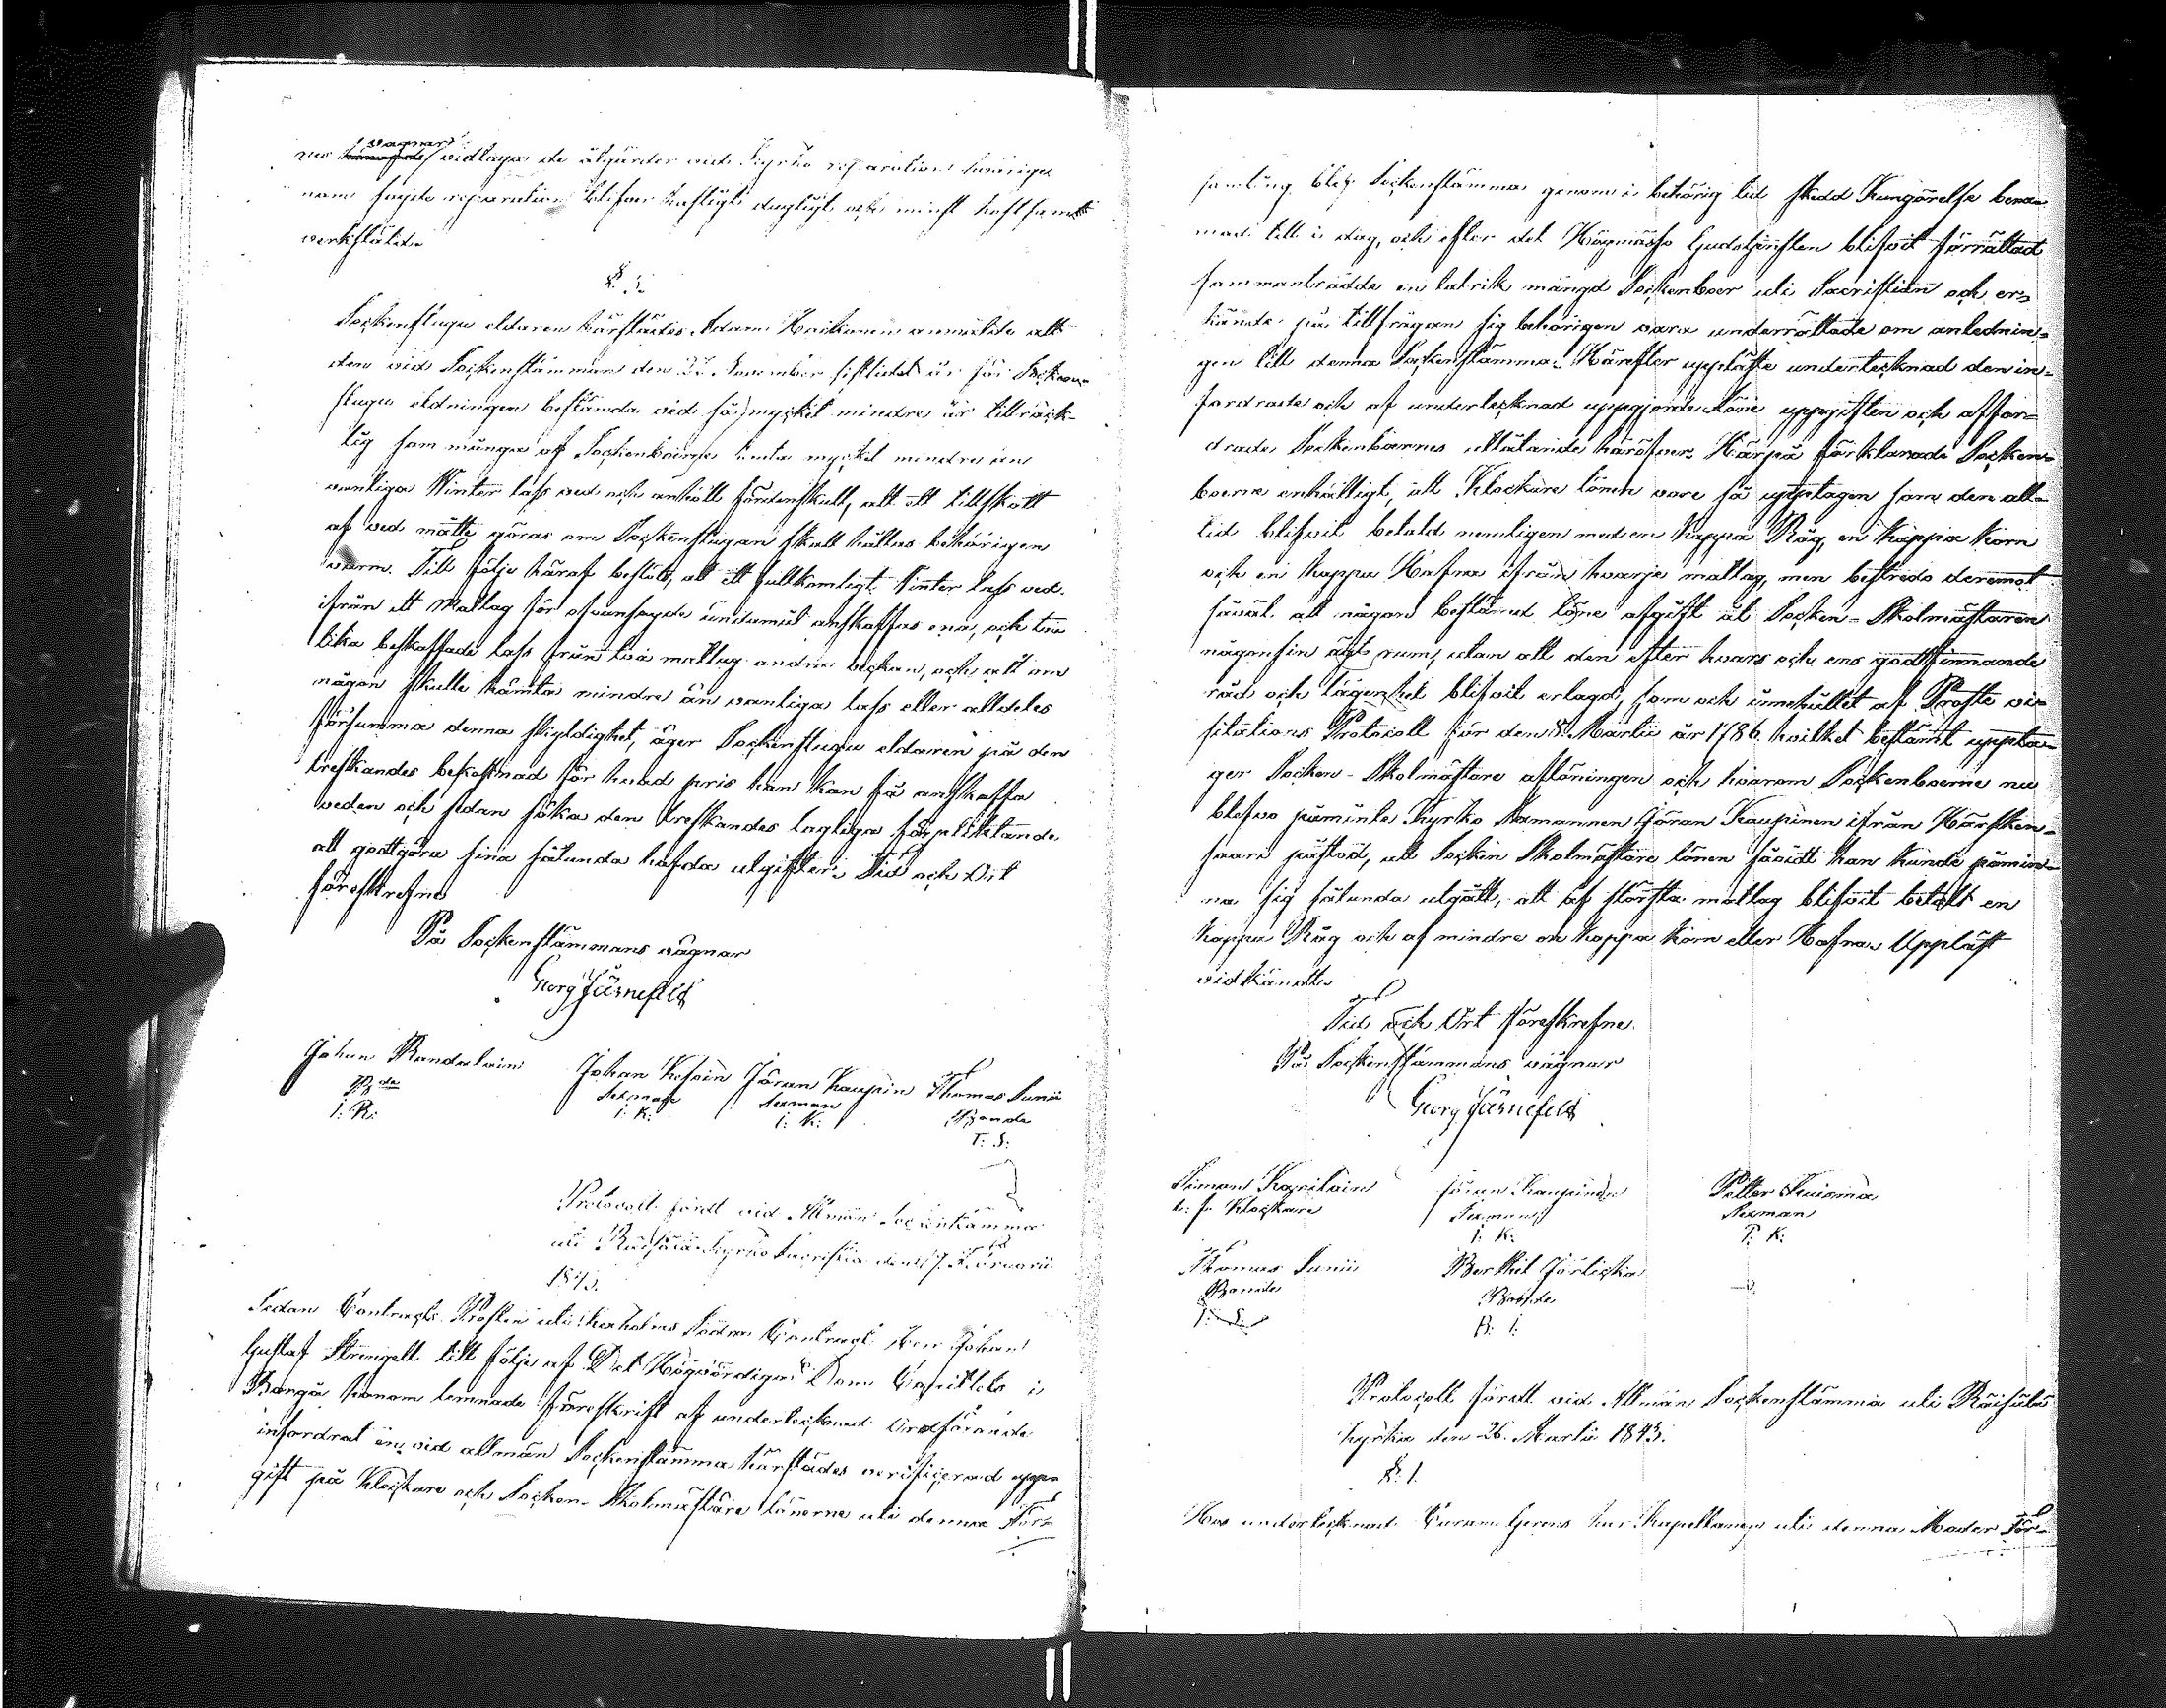 wagnar
nes vidtaga de åtgärder vid Kyrko reparation hvarige
nom sagde reparation blifver hastigt dugligt och minst kostsamt
verkstäld.
§. 3.
Sockenstugu eldaren härstädes Adam Koikonen anmälte att
den vid Sockenstämman den 27 November sistledet år för Socken-
stugu eldningen bestämda ved så mycket mindre är tillräck-
lig som många af Sockenboerne hemta mycket mindre än
vanliga Winter lass ved och anhöll fördenskull, att ett tillskott
af ved måtte göras om Sockenstugan skall hållas behörigen
varm. Till följe häraf beslöts, att ett fullkomligt Vinter lass ved
ifrån ett Matlag för ofvansagde ändamål anskaffas ena, och två
lika beskaffade lass från två matlag andra veckan, och att om
någon skulle hämta mindre än vanliga lass eller alldeles
försumma denna skyldighet, äger Sockenstugu eldaren på den
treskandes bekostnad för hvad pris han kan få anskaffa
veden och sedan söka den treskandes lagliga förpliktande
att godtgöra sina sålunda hafda utgifter. Tid och Ort
föreskrefne
På Sockenstämmans vägnar
Georg Järnefelt
Johan Randalain Johan Kesäin Göran Kaupin Thomas Sunii
Bde Sexman Sexman Bonde
I: R: I: K: I: K: T: S:
Protocoll fördt vid Allmän Sockenstämma
uti Räisälä Kyrko Sacristia den 17. Februarii
1843.
Sedan Contracts Prosten uti Kexholms Södra Contract Herr Johan
Gustaf Strengell till följe af Det Högvördiga Dom Capitlets i
Borgå honom lemnade föreskrift af undertecknad Ordförande
infordrat en, vid allmän Sockenstämma härstädes verificerad upp-
gift på Klockare och Socken-Skolmästare lönerne uti denna För-
samling blef Sockenstämma genom i behörig tid skedd Kungörelse benä-
mad till i dag, och efter det Högmässo Gudstjensten blifvit förrättad
sammanträdde en talrik mängd Sockenboer uti Sacristian och er-
kände på tillfrågan sig behörigen vara underrättade om anlednin-
gen till denna Sockenstämma. Härefter uppläste undertecknad den in-
fordrade och af undertecknad uppgjorde Löne uppgiften och affor-
drade Sockenboernes utlåtande häröfver. Härpå förklarade Socken-
boerne enhälligt, att Klockare lönen vore så upptagen som den all-
tid blifvit betald nemligen med en Kappa Råg, en Kappa Korn
och en Kappa Hafra ifrån hvarje matlag, men bestredo deremot
såväl att någon bestämd löne afgift åt Socken-Skolmästaren
någonsin ägt rum, utan att den efter hvars och ens godtfinnande
råd och lägenhet blifvit erlagd, som och innehållet af Prosté vi-
sitations Protocoll för den 8 Martii år 1786. hvilket bestämt uppta-
ger Socken-Skolmästare aflöningen och hvarom Sockenboerne nu
blefvo påminte. Kyrko Sexmannen Göran Kaupinen ifrån Härsken-
saari påstod, att Socken Skolmästare lönen såvidt han kunde påmin-
na sig sålunda utgått, att af största matlag blifvit betalt en
Kappa Råg och af mindre en Kappa Korn eller Hafra. Uppläst
vidkändt.
Tid och Ort föreskrefne.
På Sockenstämmans vägnar
Georg Järnefelt
Simon Kapilain Göran Kaupinen Petter Kuisma
t. f. Klockare Sexman Sexman
I: K: P: K:
Thomas Sunii Berthil Jörlickä
Bonde Bonde
T: S: B: I:
Protocoll fördt vid Allmän Sockenstämma uti Räisälä
kyrka den 26. Martii 1843.
§. 1.
Hos undertecknad Curam Gerens har Kapellanen uti denna Moder För-